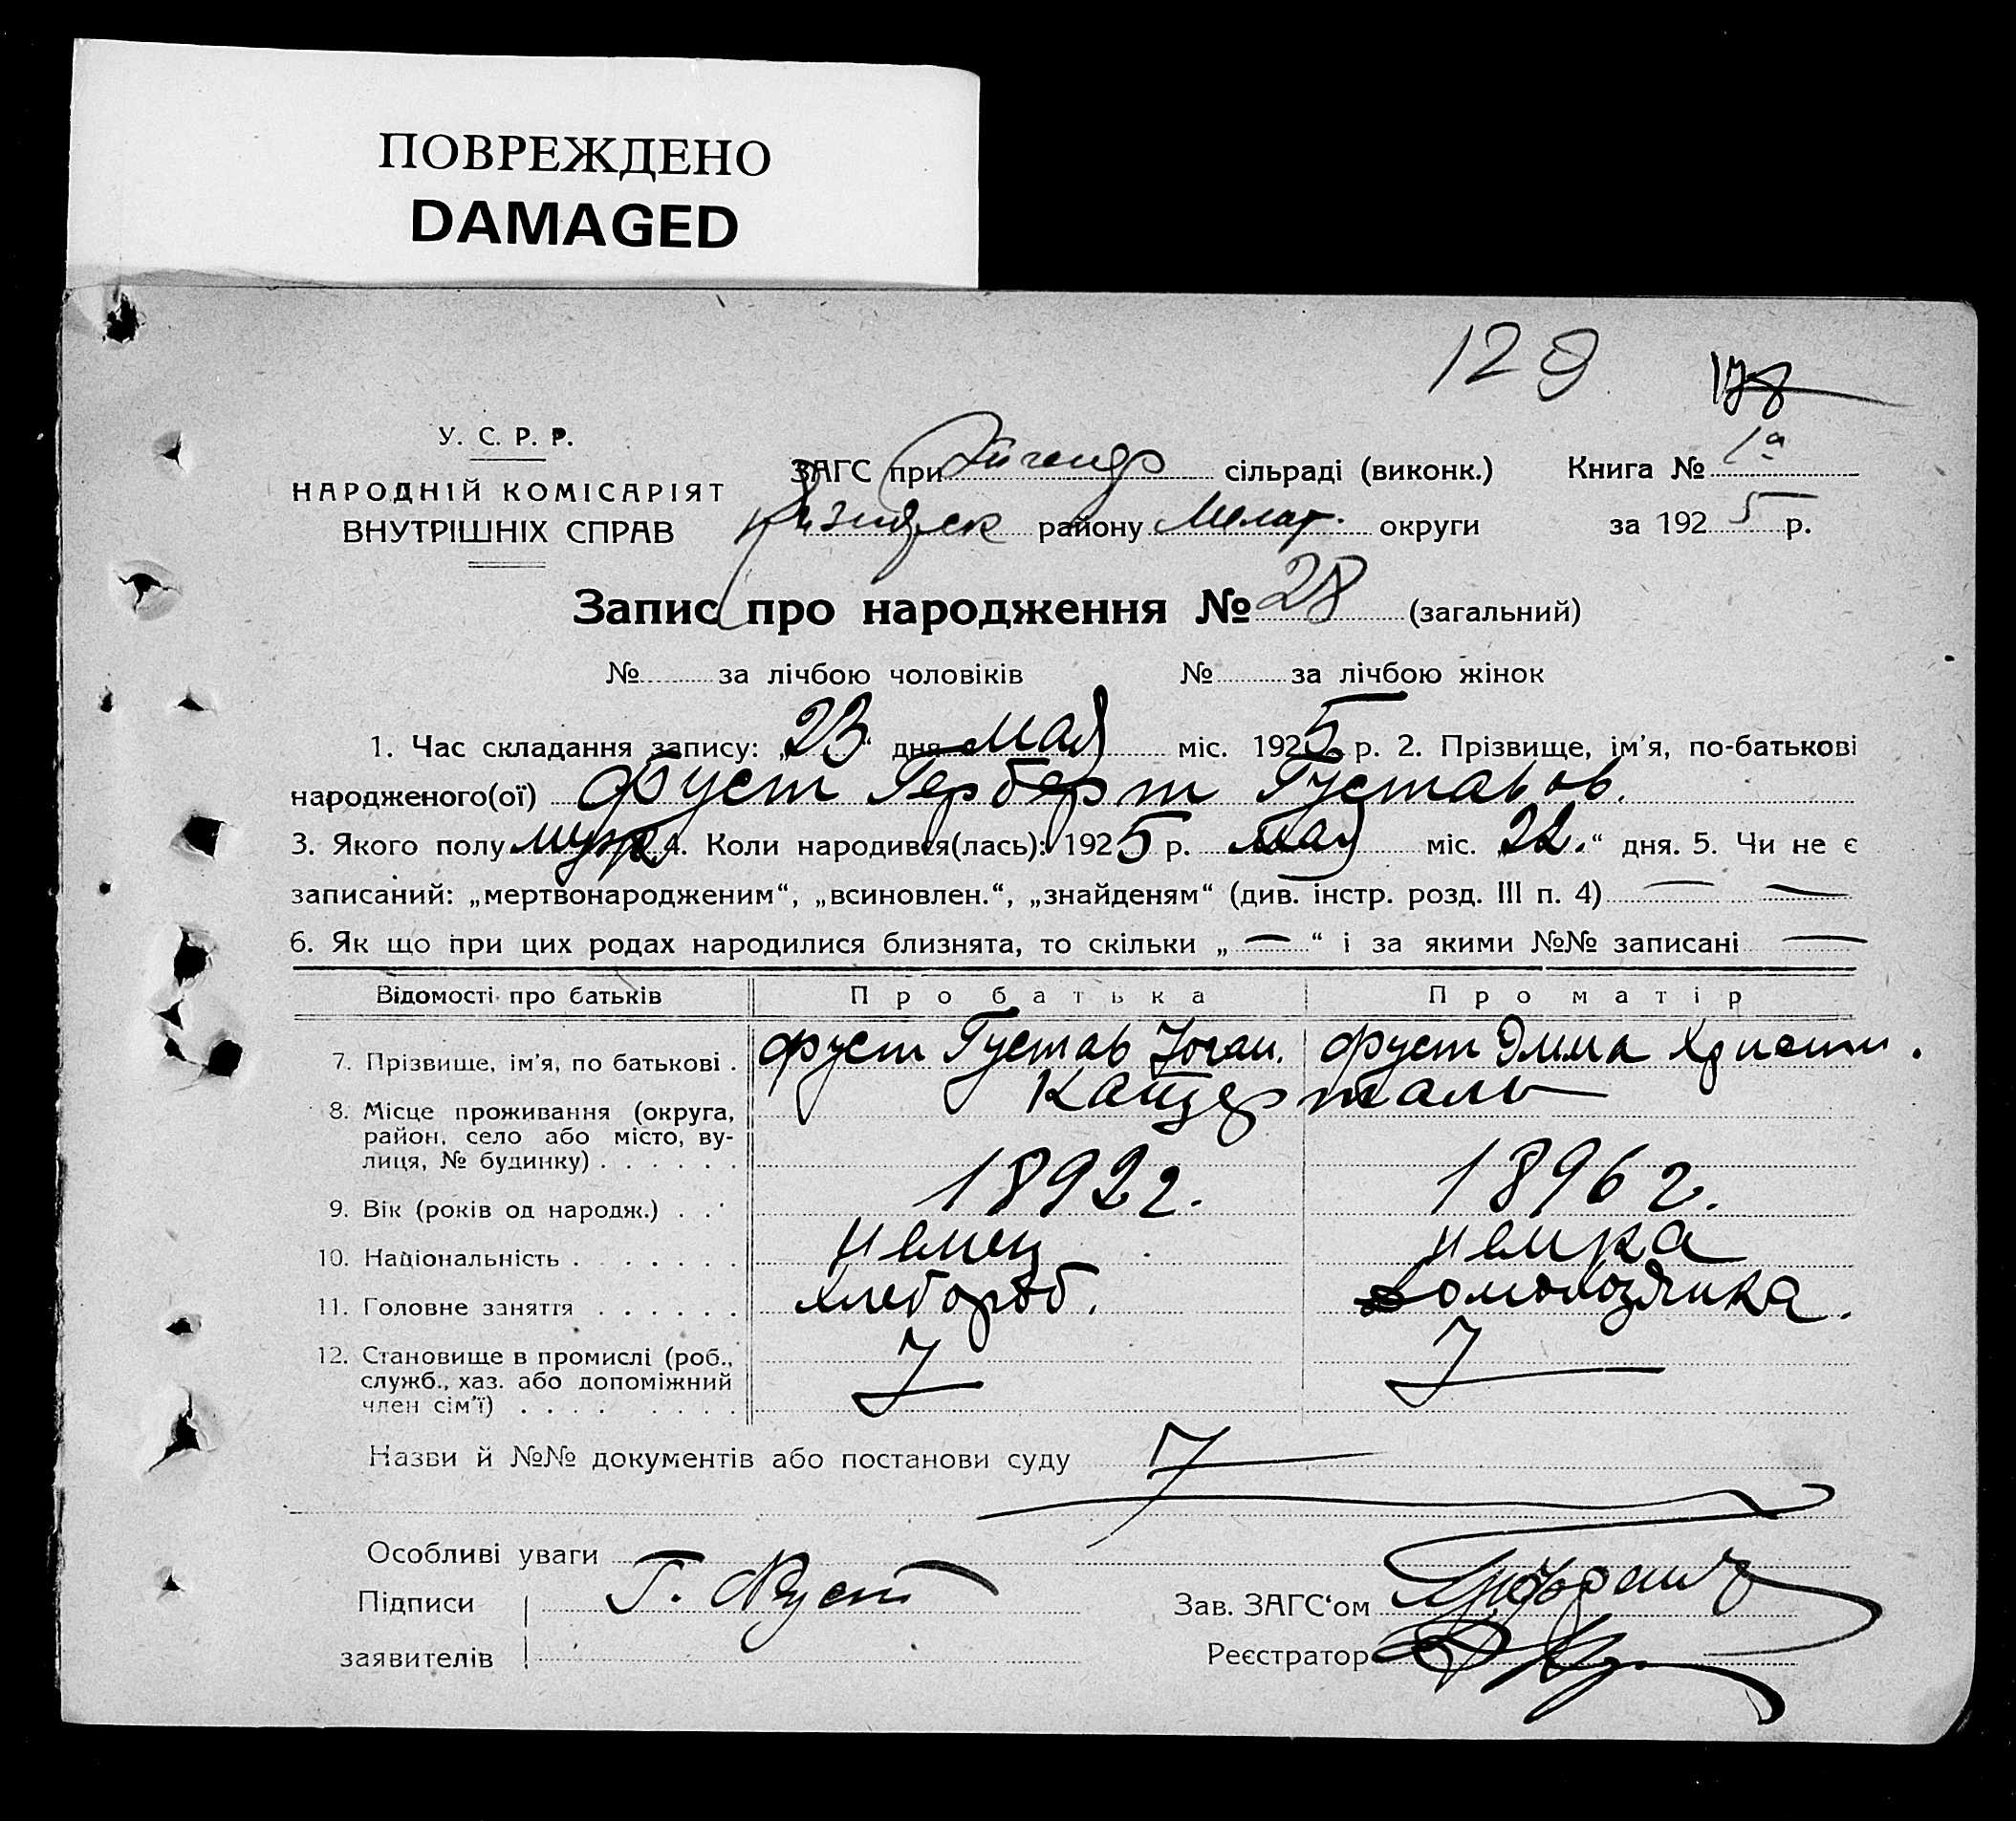 ПОВРЕЖДЕНО
DAMAGED
129 178
У. С. Р. Р.
НАРОДНІЙ КОМІСАРІЯТ
ВНУТРІШНІХ СПРАВ
ЗАГС при сільраді (виконк.) Книга № 1а
району Мелит. округи за 1925 р.
Запис про народження № 28 (загальний)
№ за лічбою чоловіків № за лічбою жінок
1. Час складання запису: „23“ дня мая міс. 1925 р. 2. Прізвище, ім'я, по-батькові
народженого(ої) Фуст Герберт Густавов.
3. Якого полу муж 4. Коли народився(лась): 1925 р. мая міс. „22.“ дня. 5. Чи не є
записаний: „мертвонародженим“, „всиновлен.“, „знайденям“ (див. інстр. розд. III п. 4) — —
6. Як що при цих родах народилися близнята, то скільки „—“ і за якими №№ записані —
Відомості про батьків Про батька Про матір
7. Прізвище, ім'я, по батькові . Фуст Густав Иоган. Фуст Эмма Христи.
8. Місце проживання (округа, район, село або місто, вулиця, № будинку) . . . . . . Кайзерталь
9. Вік (років од народж.) . . . 1892 г. 1896 г.
10. Національність . . . . . . . немец немка
11. Головне заняття . . . . . . хлебороб. домохозяйка.
12. Становище в промислі (роб., служб., хаз. або допоміжний член сім'ї) . . . . . . . .
Назви й №№ документів або постанови суду
Особливі уваги
Підписи Г. Фуст Зав. ЗАГС'ом
заявителів Реєстратор